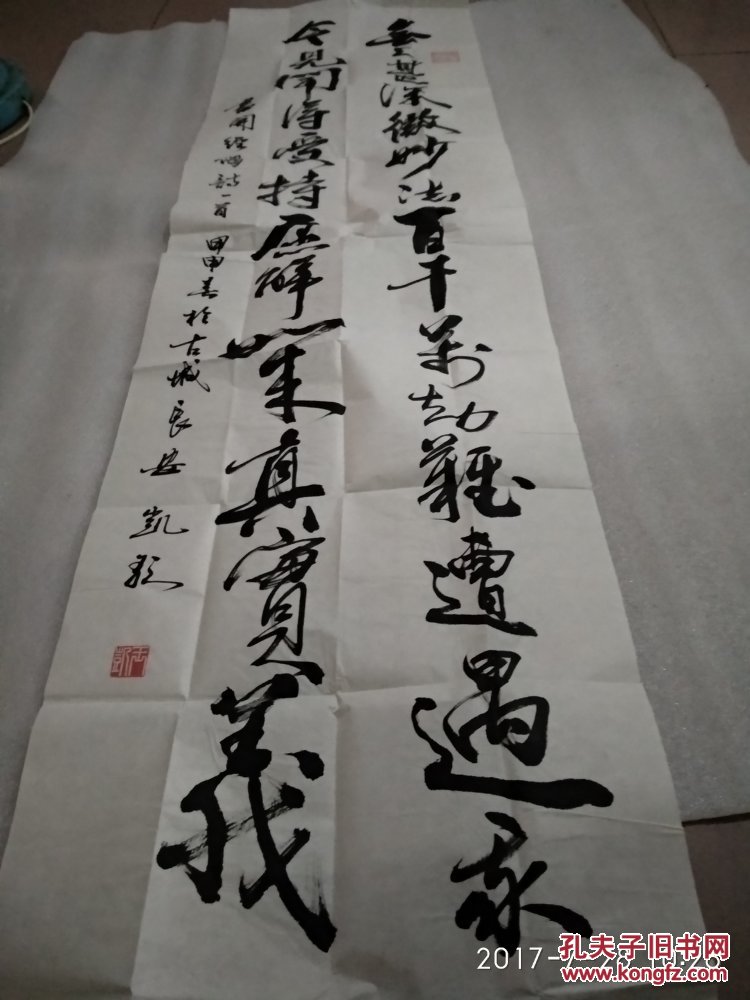 無上甚深微妙法百千萬劫難遭遇我
今見聞得受持愿解如来真實義
開經偈詩一首 甲申春於古城長安 凱
2017-7-26 10:26
孔夫子旧书网
www.kongfz.com